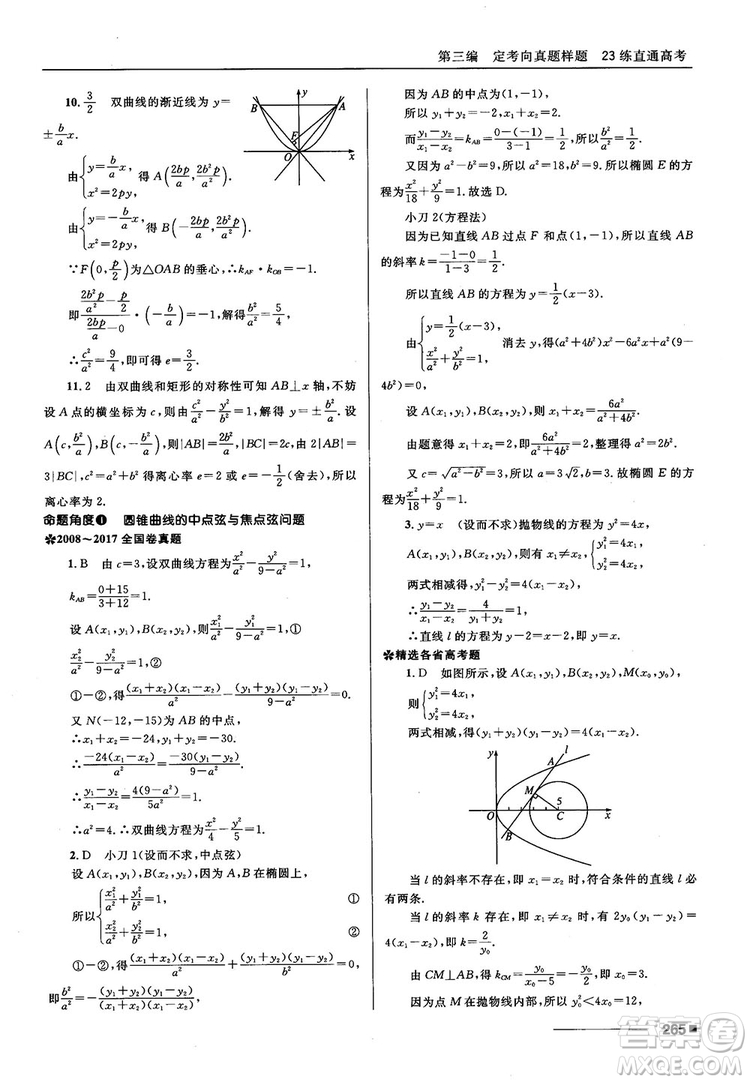 第三编　定考向真题样题　23 练直通高考
10. 3/2　双曲线的渐近线为 y=
±b/a x.
由{y=b/a x, x²=2py, 得 A(2bp/a, 2b²p/a²).
由{y=-b/a x, x²=2py, 得 B(-2bp/a, 2b²p/a²).
∵F(0, p/2)为△OAB 的垂心,∴k_AF·k_OB=-1.
即(2b²p/a²-p/2)/(2bp/a-0)·(-b/a)=-1,解得b²/a²=5/4,
∴c²/a²=9/4,即可得 e=3/2.
11. 2　由双曲线和矩形的对称性可知 AB⊥x 轴,不妨
设 A 点的横坐标为 c,则由c²/a²-y²/b²=1,解得 y=±b²/a.设
A(c, b²/a),B(c, -b²/a),则|AB|=2b²/a,|BC|=2c,由 2|AB|=
3|BC|,c²=a²+b²得离心率 e=2 或 e=-1/2(舍去),所以
离心率为 2.
命题角度❶　圆锥曲线的中点弦与焦点弦问题
✽2008～2017 全国卷真题
1. B　由 c=3,设双曲线方程为x²/a²-y²/(9-a²)=1,
k_AB=(0+15)/(3+12)=1.
设 A(x₁,y₁),B(x₂,y₂),则x₁²/a²-y₁²/(9-a²)=1,①
x₂²/a²-y₂²/(9-a²)=1,②
①-②,得(x₁+x₂)(x₁-x₂)/a²-(y₁+y₂)(y₁-y₂)/(9-a²)=0.
又 N(-12,-15)为 AB 的中点,
∴x₁+x₂=-24,y₁+y₂=-30.
∴-24(x₁-x₂)/a²=-30(y₁-y₂)/(9-a²).
∴(y₁-y₂)/(x₁-x₂)=4(9-a²)/5a²=1.
∴a²=4.∴双曲线方程为x²/4-y²/5=1.
2. D　小刀 1(设而不求,中点弦)
设 A(x₁,y₁),B(x₂,y₂),因为 A,B 在椭圆上,
所以{x₁²/a²+y₁²/b²=1,　① x₂²/a²+y₂²/b²=1.　②
①-②,得(x₁+x₂)(x₁-x₂)/a²+(y₁+y₂)(y₁-y₂)/b²=0,
即b²/a²=-(y₁+y₂)(y₁-y₂)/(x₁+x₂)(x₁-x₂),
B
A
F
O
x
y
因为 AB 的中点为(1,-1),
所以 y₁+y₂=-2,x₁+x₂=2,
而(y₁-y₂)/(x₁-x₂)=k_AB=(0-(-1))/(3-1)=1/2,所以b²/a²=1/2.
又因为 a²-b²=9,所以 a²=18,b²=9.所以椭圆 E 的方
程为x²/18+y²/9=1.故选 D.
小刀 2(方程法)
因为已知直线 AB 过点 F 和点(1,-1),所以直线 AB
的斜率 k=(-1-0)/(1-3)=1/2.
所以直线 AB 的方程为 y=1/2(x-3),
由{y=1/2(x-3), x²/a²+y²/b²=1　消去 y,得(a²+4b²)x²-6a²x+a²(9-
4b²)=0.
设 A(x₁,y₁),B(x₂,y₂),则 x₁+x₂=6a²/(a²+4b²).
由题意得 x₁+x₂=2,即6a²/(a²+4b²)=2,整理得 a²=2b².
又 c=√(a²-b²)=3,所以 a=3√2,b=3.所以椭圆方程为
x²/18+y²/9=1.
3. y=x　(设而不求)抛物线的方程为 y²=4x,
A(x₁,y₁),B(x₂,y₂),则有 x₁≠x₂,{y₁²=4x₁, y₂²=4x₂,
两式相减得,y₁²-y₂²=4(x₁-x₂),
∴(y₁-y₂)/(x₁-x₂)=4/(y₁+y₂)=1.
∴直线 l 的方程为 y-2=x-2,即 y=x.
✽精选各省高考题
1. D　如图所示,设 A(x₁,y₁),B(x₂,y₂),M(x₀,y₀),
则{y₁²=4x₁, y₂²=4x₂.
两式相减,得(y₁+y₂)(y₁-y₂)=4(x₁-x₂).
y
A
l
M
5
O
C
x
B
当 l 的斜率不存在,即 x₁=x₂时,符合条件的直线 l 必
有两条.
当 l 的斜率 k 存在,即 x₁≠x₂时,有 2y₀(y₁-y₂)=
4(x₁-x₂),即 k=2/y₀.
由 CM⊥AB,得 k_CM=(y₀-0)/(x₀-5)=-y₀/2,即 x₀=3.
因为点 M 在抛物线内部,所以 y₀²<4x₀=12,
265
答案圈